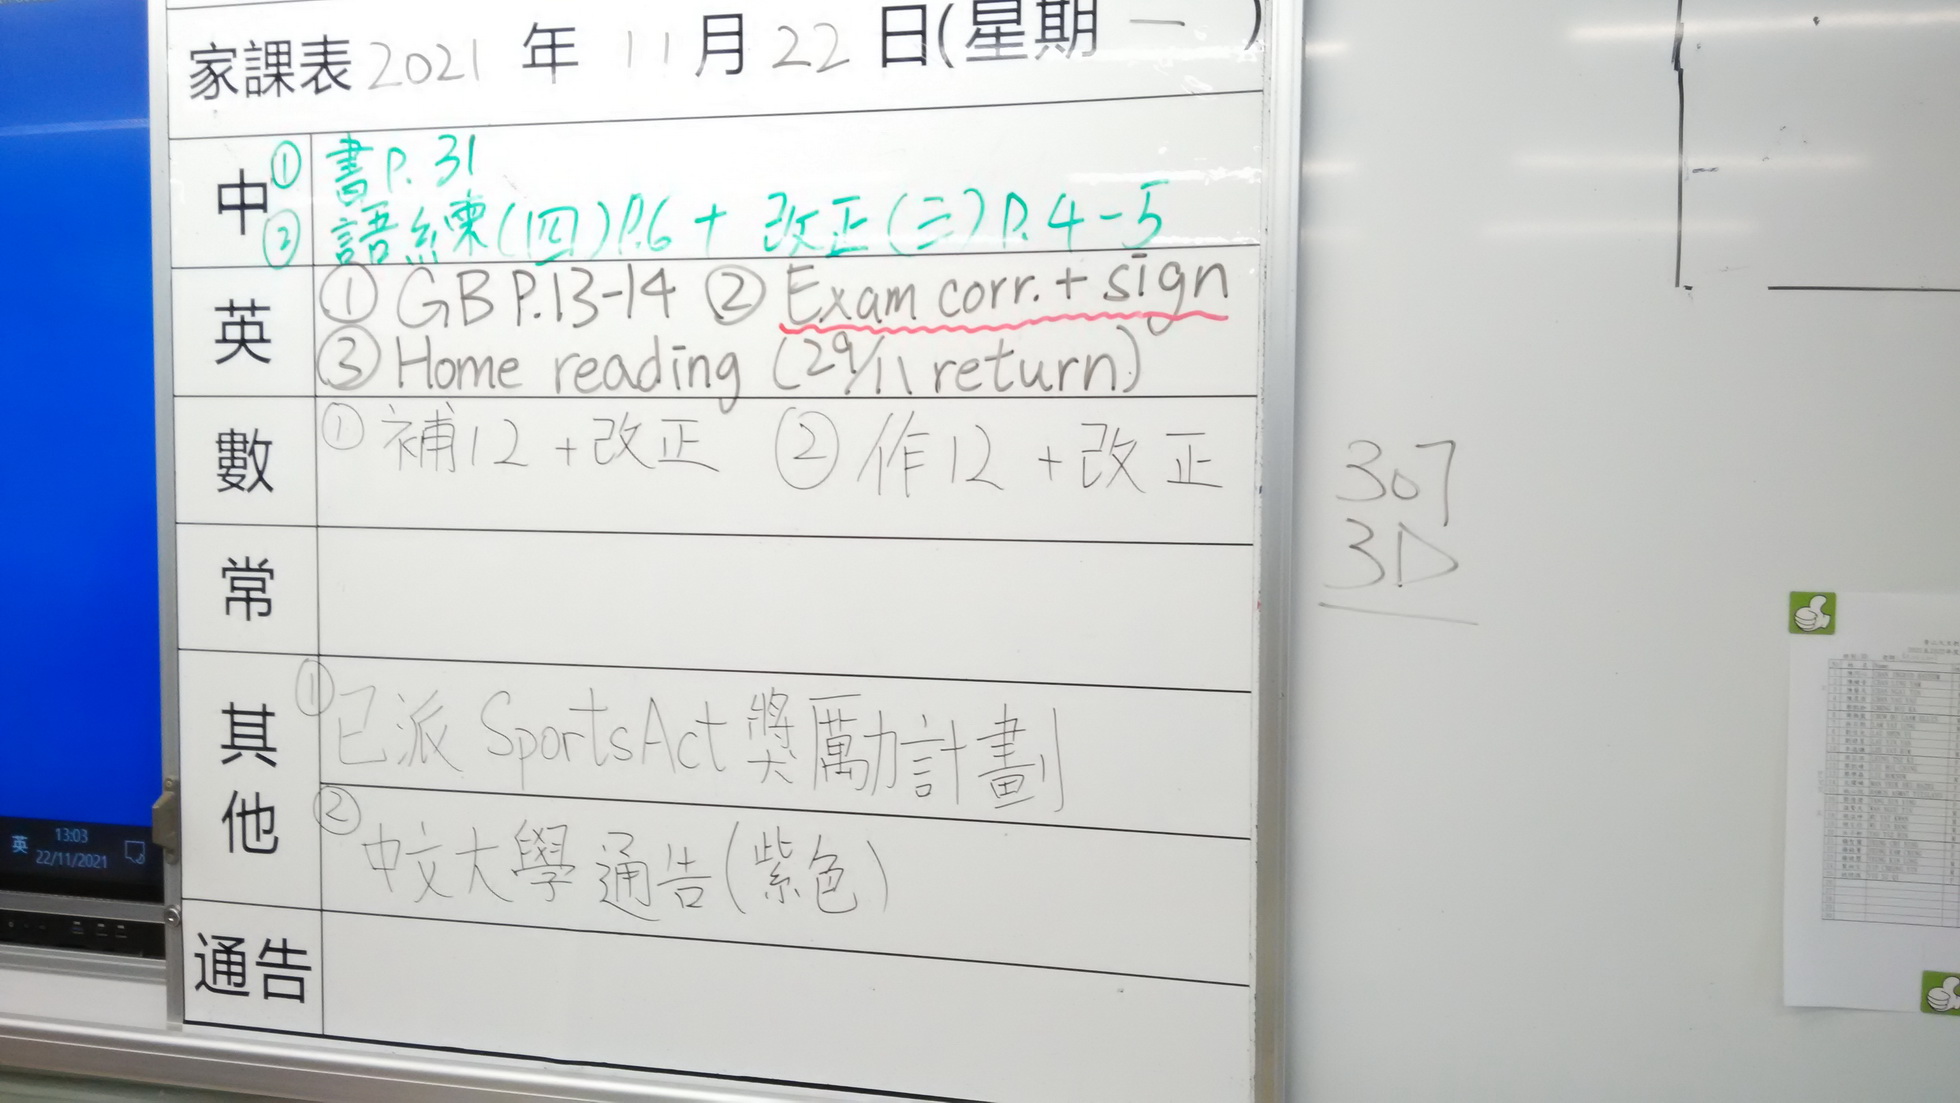 家課表 2021 年 11 月 22 日(星期 一 )
中
① 書P.31
② 語練(四)P.6 + 改正(三)P.4-5
英
① GB P.13-14 ② Exam corr. + sign
③ Home reading (29/11 return)
數
① 補12 + 改正 ② 作12 + 改正
常
其他
① 已派 SportsAct 獎勵計劃
② 中文大學通告(紫色)
通告
307
3D
英 13:03
22/11/2021